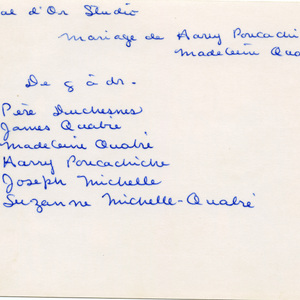 al d'Or Studio
Mariage de Harry Poucachi
Madeleine Qua
De g à dr.
Père Duchesnes
James Quatré
Madeleine Quatré
Harry Poucachiche
Joseph Michelle
Suzanne Michelle-Quatré